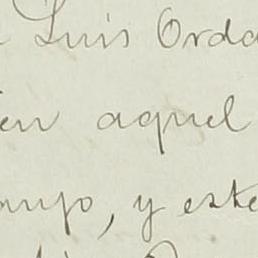 Luis Orda
en aquel
, y este